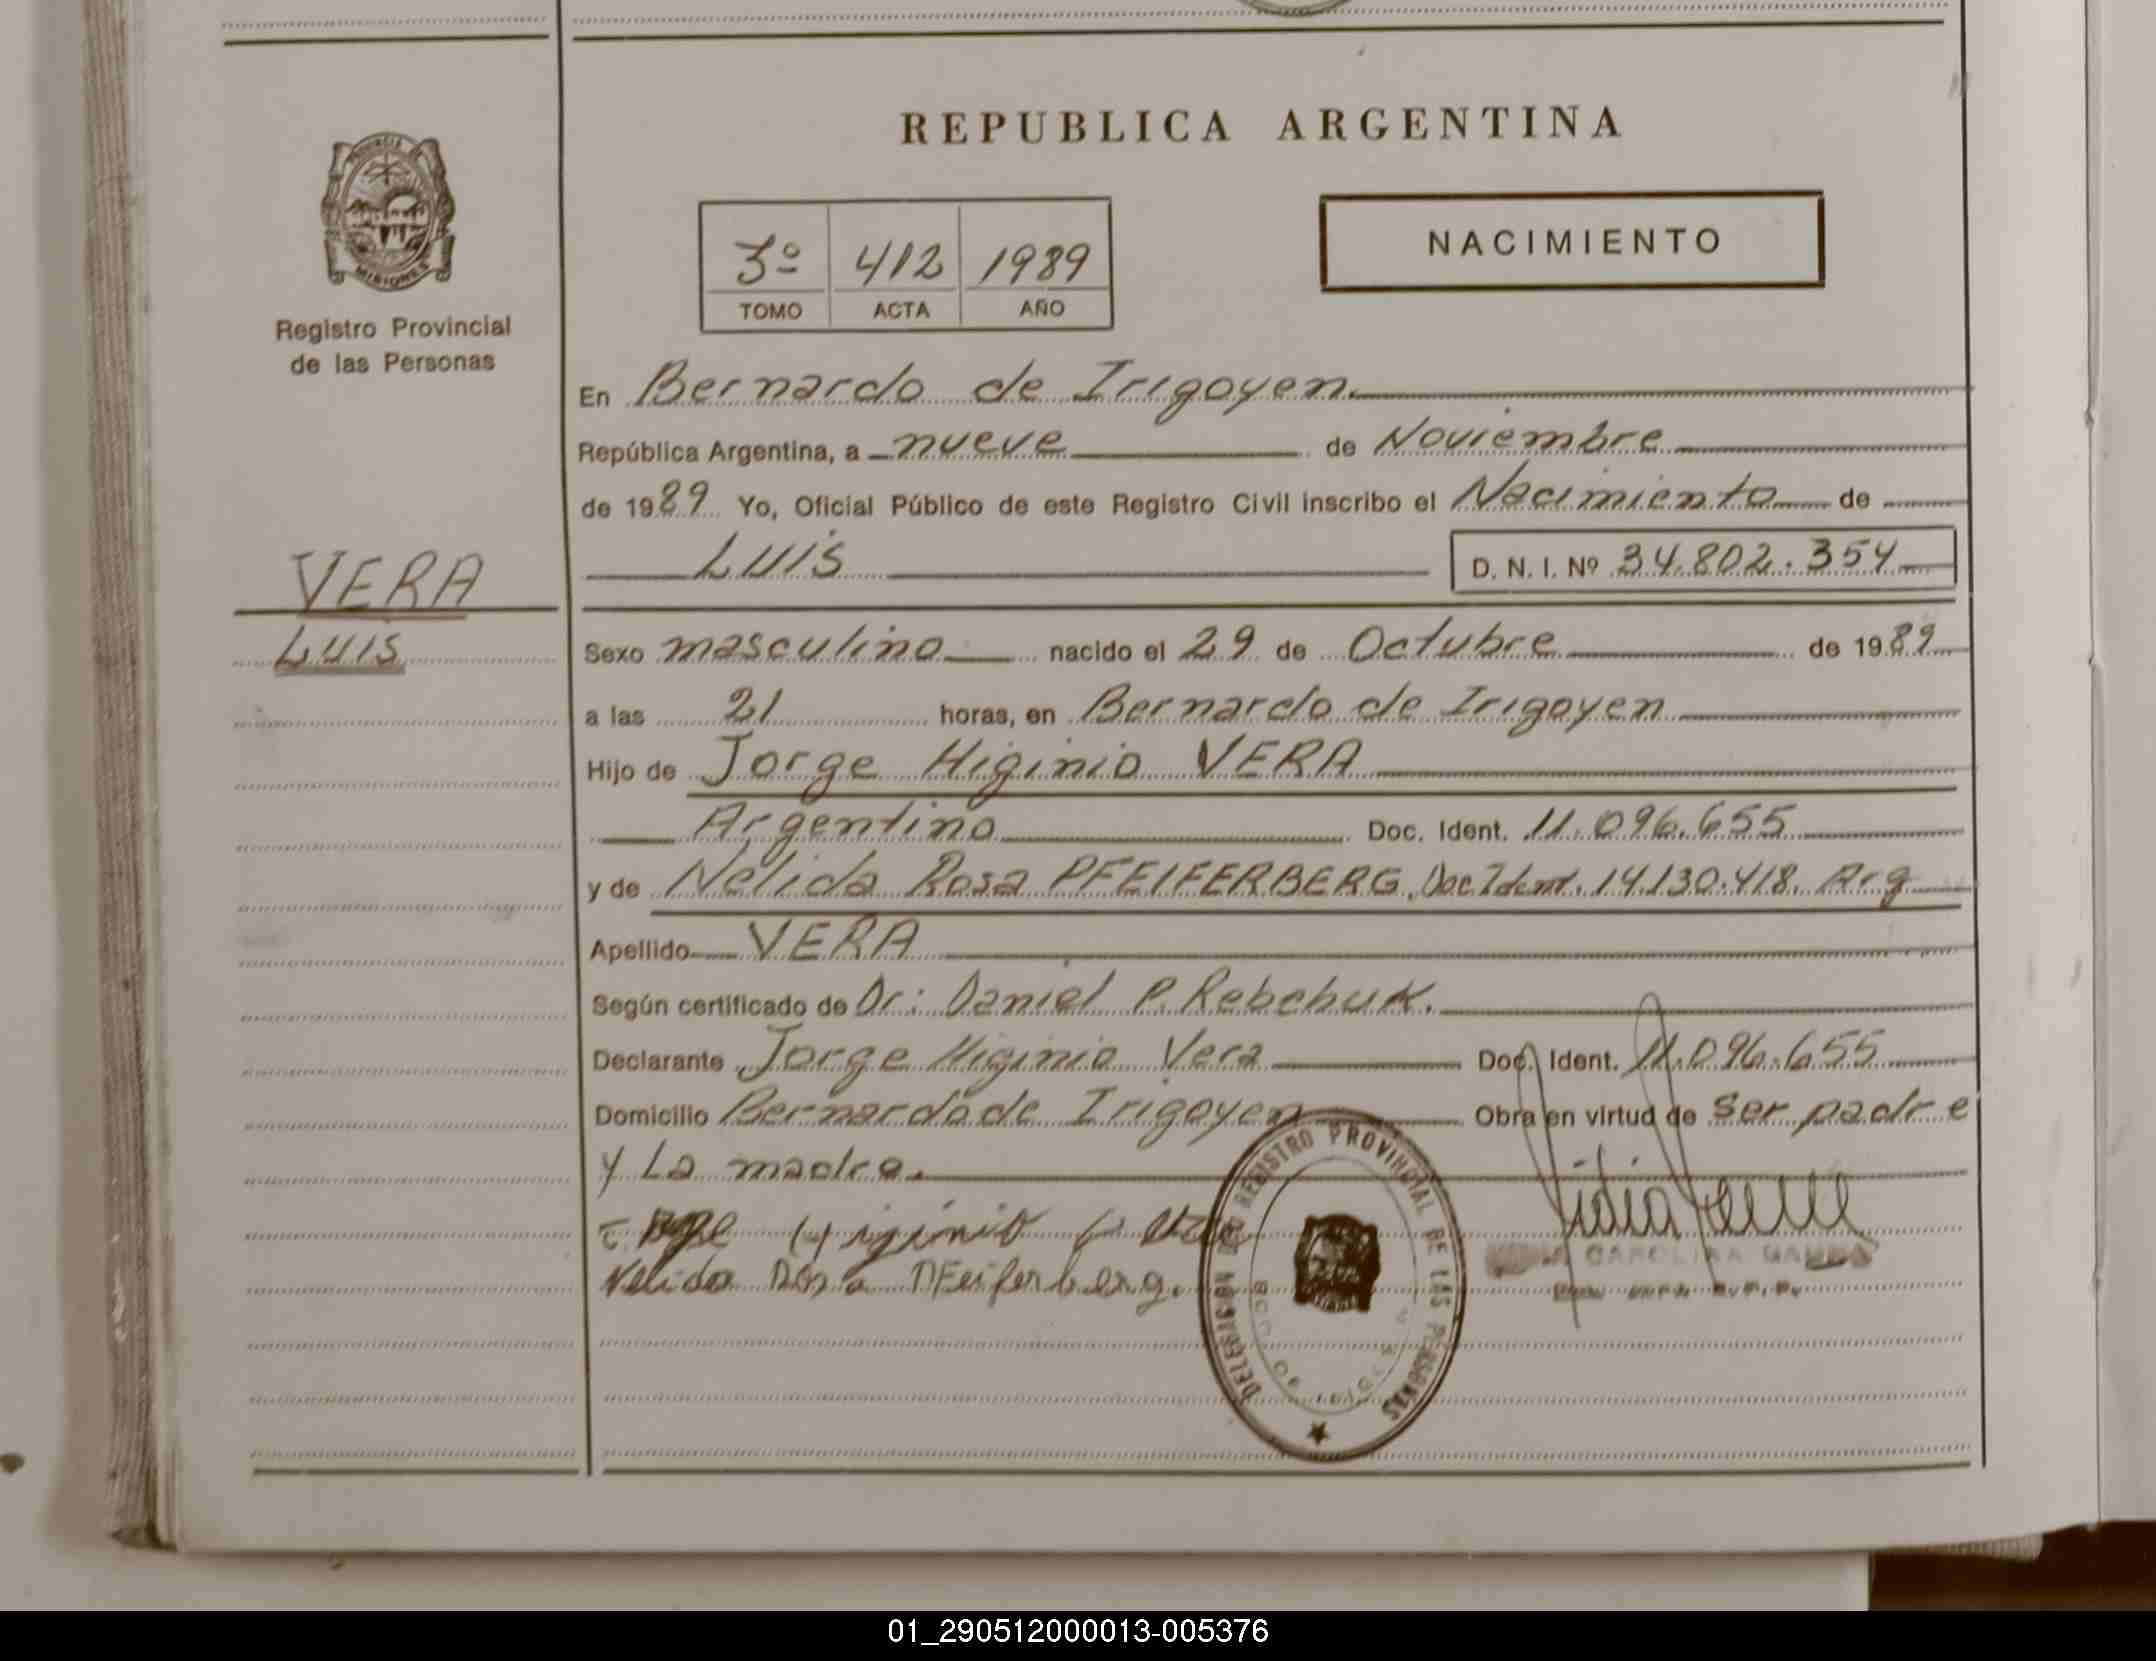 REPUBLICA ARGENTINA
PROVINCIA DE
MISIONES
Registro Provincial
de las Personas
3º 412 1989
TOMO ACTA AÑO
NACIMIENTO
En Bernardo de Irigoyen.
República Argentina, a nueve de Noviembre
de 1989 Yo, Oficial Público de este Registro Civil inscribo el Nacimiento de
Luis D. N. I. Nº 34.802.354
VERA
Luis
Sexo masculino nacido el 29 de Octubre de 1989
a las 21 horas, en Bernardo de Irigoyen
Hijo de Jorge Higinio VERA
Argentino Doc. Ident. 11.096.655
y de Nélida Rosa PFEIFERBERG, Doc Ident. 14.130.418. Arg
Apellido VERA
Según certificado de Dr: Daniel P. Rebchuk.
Declarante Jorge Higinio Vera Doc. Ident. 11.096.655
Domicilio Bernardo de Irigoyen Obra en virtud de ser padre
y La madre.
Nelida Rosa PFeiferberg.
DELEGACION DEL REGISTRO PROVINCIAL DE LAS PERSONAS
CAROLINA
01_290512000013-005376